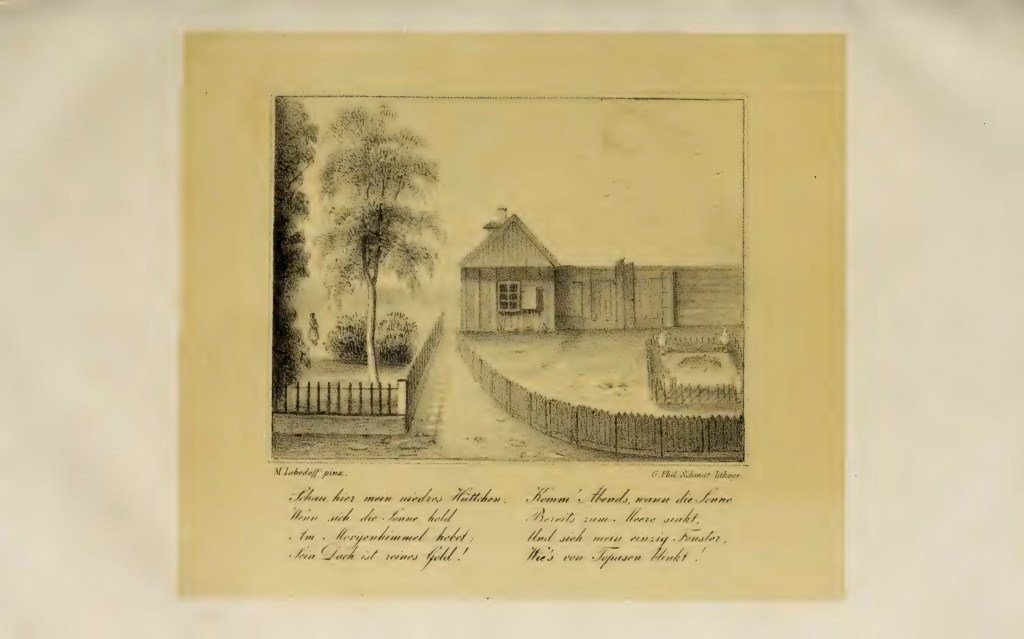 M. Lebedoff pinx.
G. Phil. Schmitt lithogr.
Schau hier mein niedres Hüttchen,
Wenn sich die Sonne hold
Am Morgenhimmel hebet,
Sein Dach ist reines Gold!
Komm' Abends, wann die Sonne
Bereits zum Meere sinkt,
Und sieh mein einzig Fenster,
Wie's von Topasen blinkt!